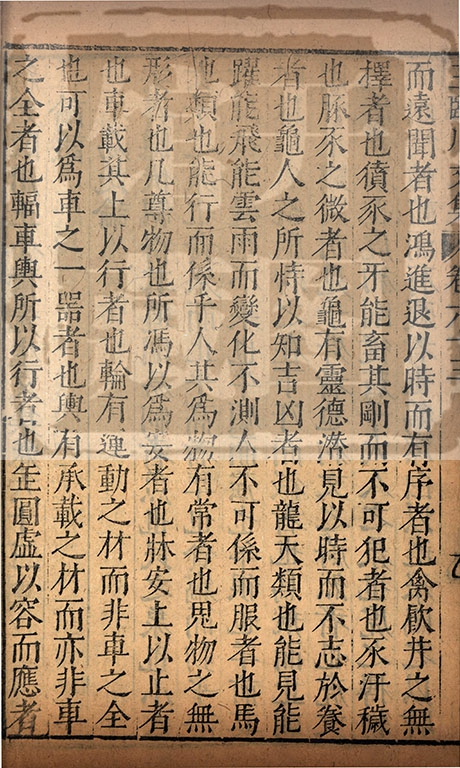 而遠聞者也鴻進退以時而有序者也禽厭井之無
擇者也豶豕之牙能畜其剛而不可犯者也豕汙穢
也豚豕之微者也龜有靈德潛見以時而不志於養
者也龜人之所恃以知吉凶者也龍天類也能見能
躍能飛能雲雨而變化不測人不可係而服者也馬
地類也能行而係乎人其爲物有常者也鬼物之無
形者也几尊物也所馮以爲安者也牀安上以止者
也車載其上以行者也輪有運動之材而非車之全
也可以爲車之一器者也輿有承載之材而亦非車
之全者也輻車輿所以行者也缶圓虛以容而應者